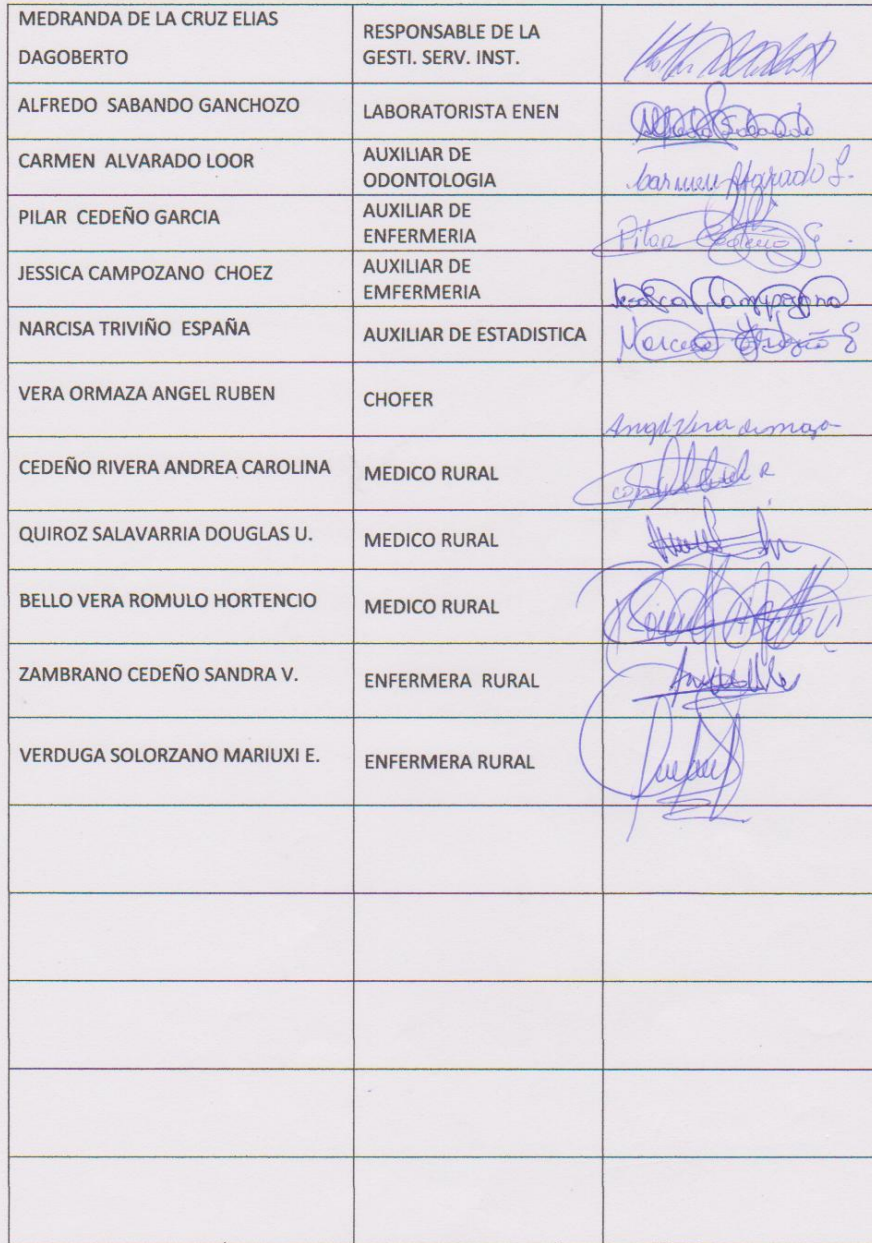 MEDRANDA DE LA CRUZ ELIAS
DAGOBERTO
RESPONSABLE DE LA
GESTI. SERV. INST.
ALFREDO SABANDO GANCHOZO
LABORATORISTA ENEN
Alfredo Sabando
CARMEN ALVARADO LOOR
AUXILIAR DE
ODONTOLOGIA
Carmen Alvarado L.
PILAR CEDEÑO GARCIA
AUXILIAR DE
ENFERMERIA
Pilar Cedeño G.
JESSICA CAMPOZANO CHOEZ
AUXILIAR DE
EMFERMERIA
Jessica Campozano
NARCISA TRIVIÑO ESPAÑA
AUXILIAR DE ESTADISTICA
Narcisa Triviño E
VERA ORMAZA ANGEL RUBEN
CHOFER
Angel Vera Ormaza
CEDEÑO RIVERA ANDREA CAROLINA
MEDICO RURAL
QUIROZ SALAVARRIA DOUGLAS U.
MEDICO RURAL
BELLO VERA ROMULO HORTENCIO
MEDICO RURAL
ZAMBRANO CEDEÑO SANDRA V.
ENFERMERA RURAL
VERDUGA SOLORZANO MARIUXI E.
ENFERMERA RURAL